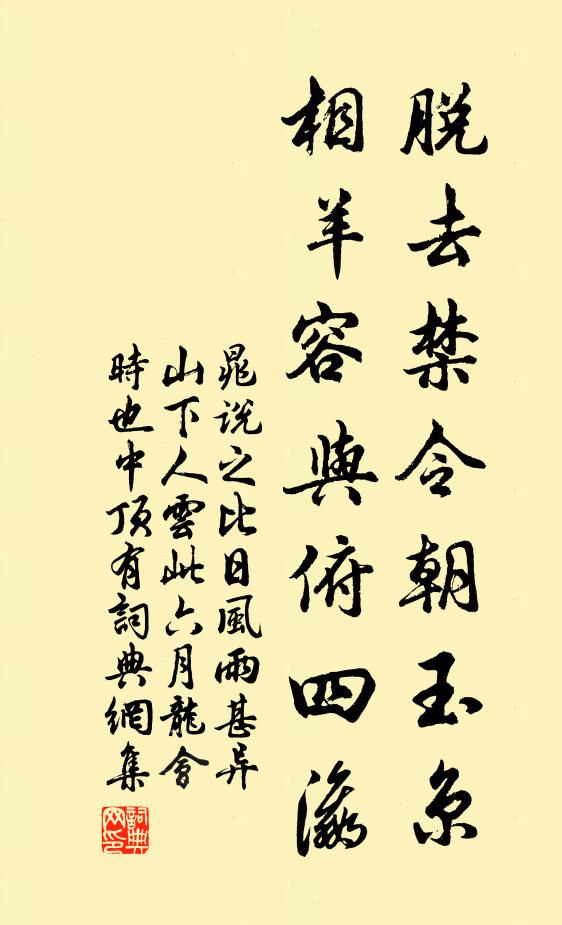 脱去禁令朝玉京
相羊容與俯四瀛
晁说之比日風雨甚异
山下人雲此六月龍會
時也中頂有詞典網集
詞典網印